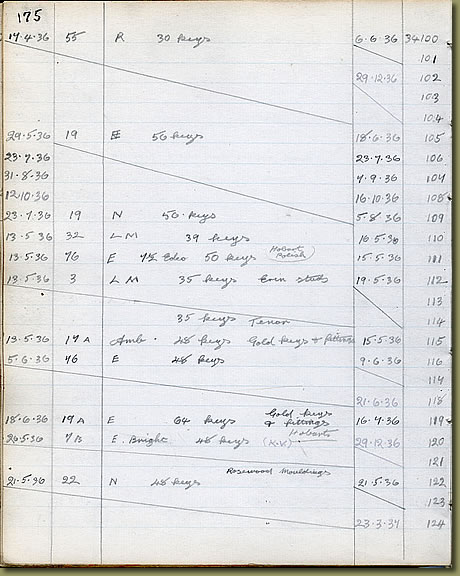 175
17.4.36 55 R 30 keys 6.6.36 34100
101
29.12.36 102
103
104
29.5.36 19 E 56 keys 18.6.36 105
23.7.36 23.7.36 106
31.8.36 7.9.36 107
12.10.36 16.10.36 108
23.7.36 19 N 56 keys 5.8.36 109
13.5.36 32 L M 39 keys 16.5.36 110
13.5.36 76 E 50 keys Hobart Polish 15.5.36 111
13.5.36 3 L M 35 keys Even studs 19.5.36 112
113
35 keys Tenor 114
13.5.36 17 A Amb. 48 keys Gold keys & fittings 15.5.36 115
5.6.36 46 E 48 keys 9.6.36 116
117
21.6.36 118
18.6.36 19 A E 64 keys Gold keys & fittings 16.7.36 119
26.5.36 7 B E. Bright 48 keys Hobarts 29.12.36 120
121
Rosewood Mouldings
21.5.36 22 N 48 keys 21.5.36 122
123
23.3.37 124